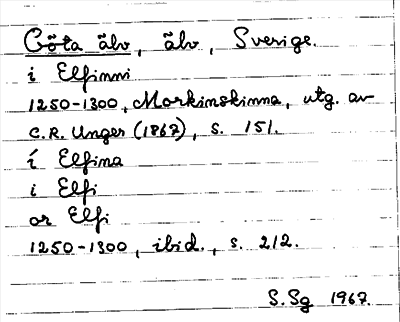 Göta älv, älv, Sverige.
i Elfinni
1250-1300, Morkinskinna, utg. av
C.R. Unger (1867), s. 151.
í Elfina
i Elfi
or Elfi
1250-1300, ibid., s. 212.
S.Sg 1967.